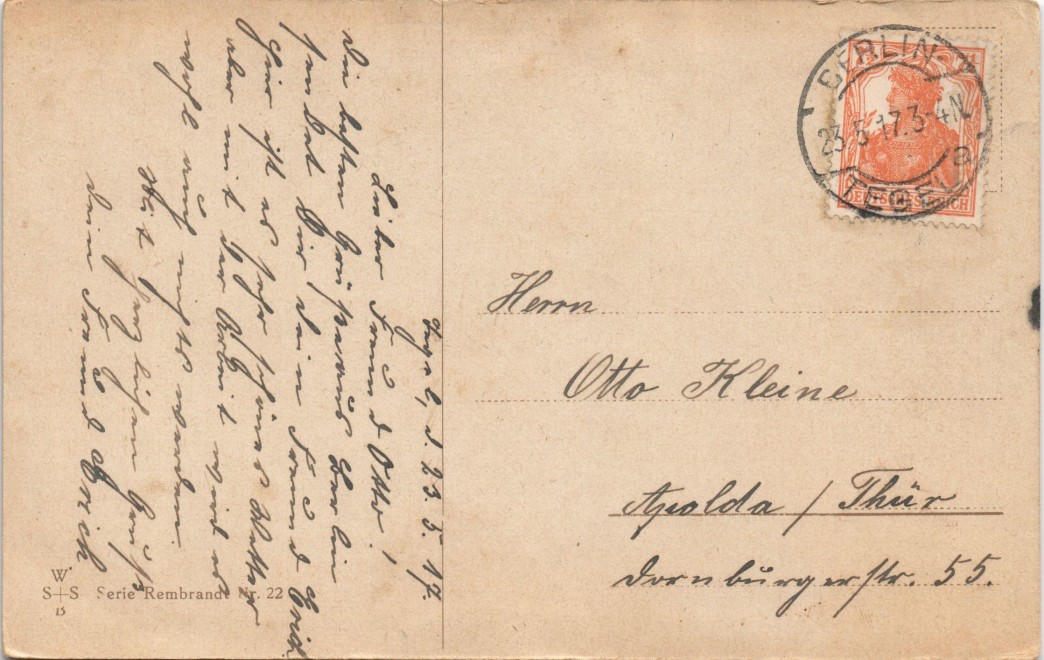 Tegel, d. 23.5.17.
Lieber Freund Otto!
Die besten Grüße aus Berlin
sendet Dir dein Freund Erich
Hier ist es sehr schönes Wetter
aber mit der Arbeit wird es
wohl auch nichts werden.
Mit herzlichem Gruß
dein Freund Erich
W
S+S Serie Rembrandt Nr. 22
15
BERLIN
23.5.17.3-4N.
TEGEL a
DEUTSCHES REICH
Herrn
Otto Kleine
Apolda / Thür
Dornburgerstr. 55.